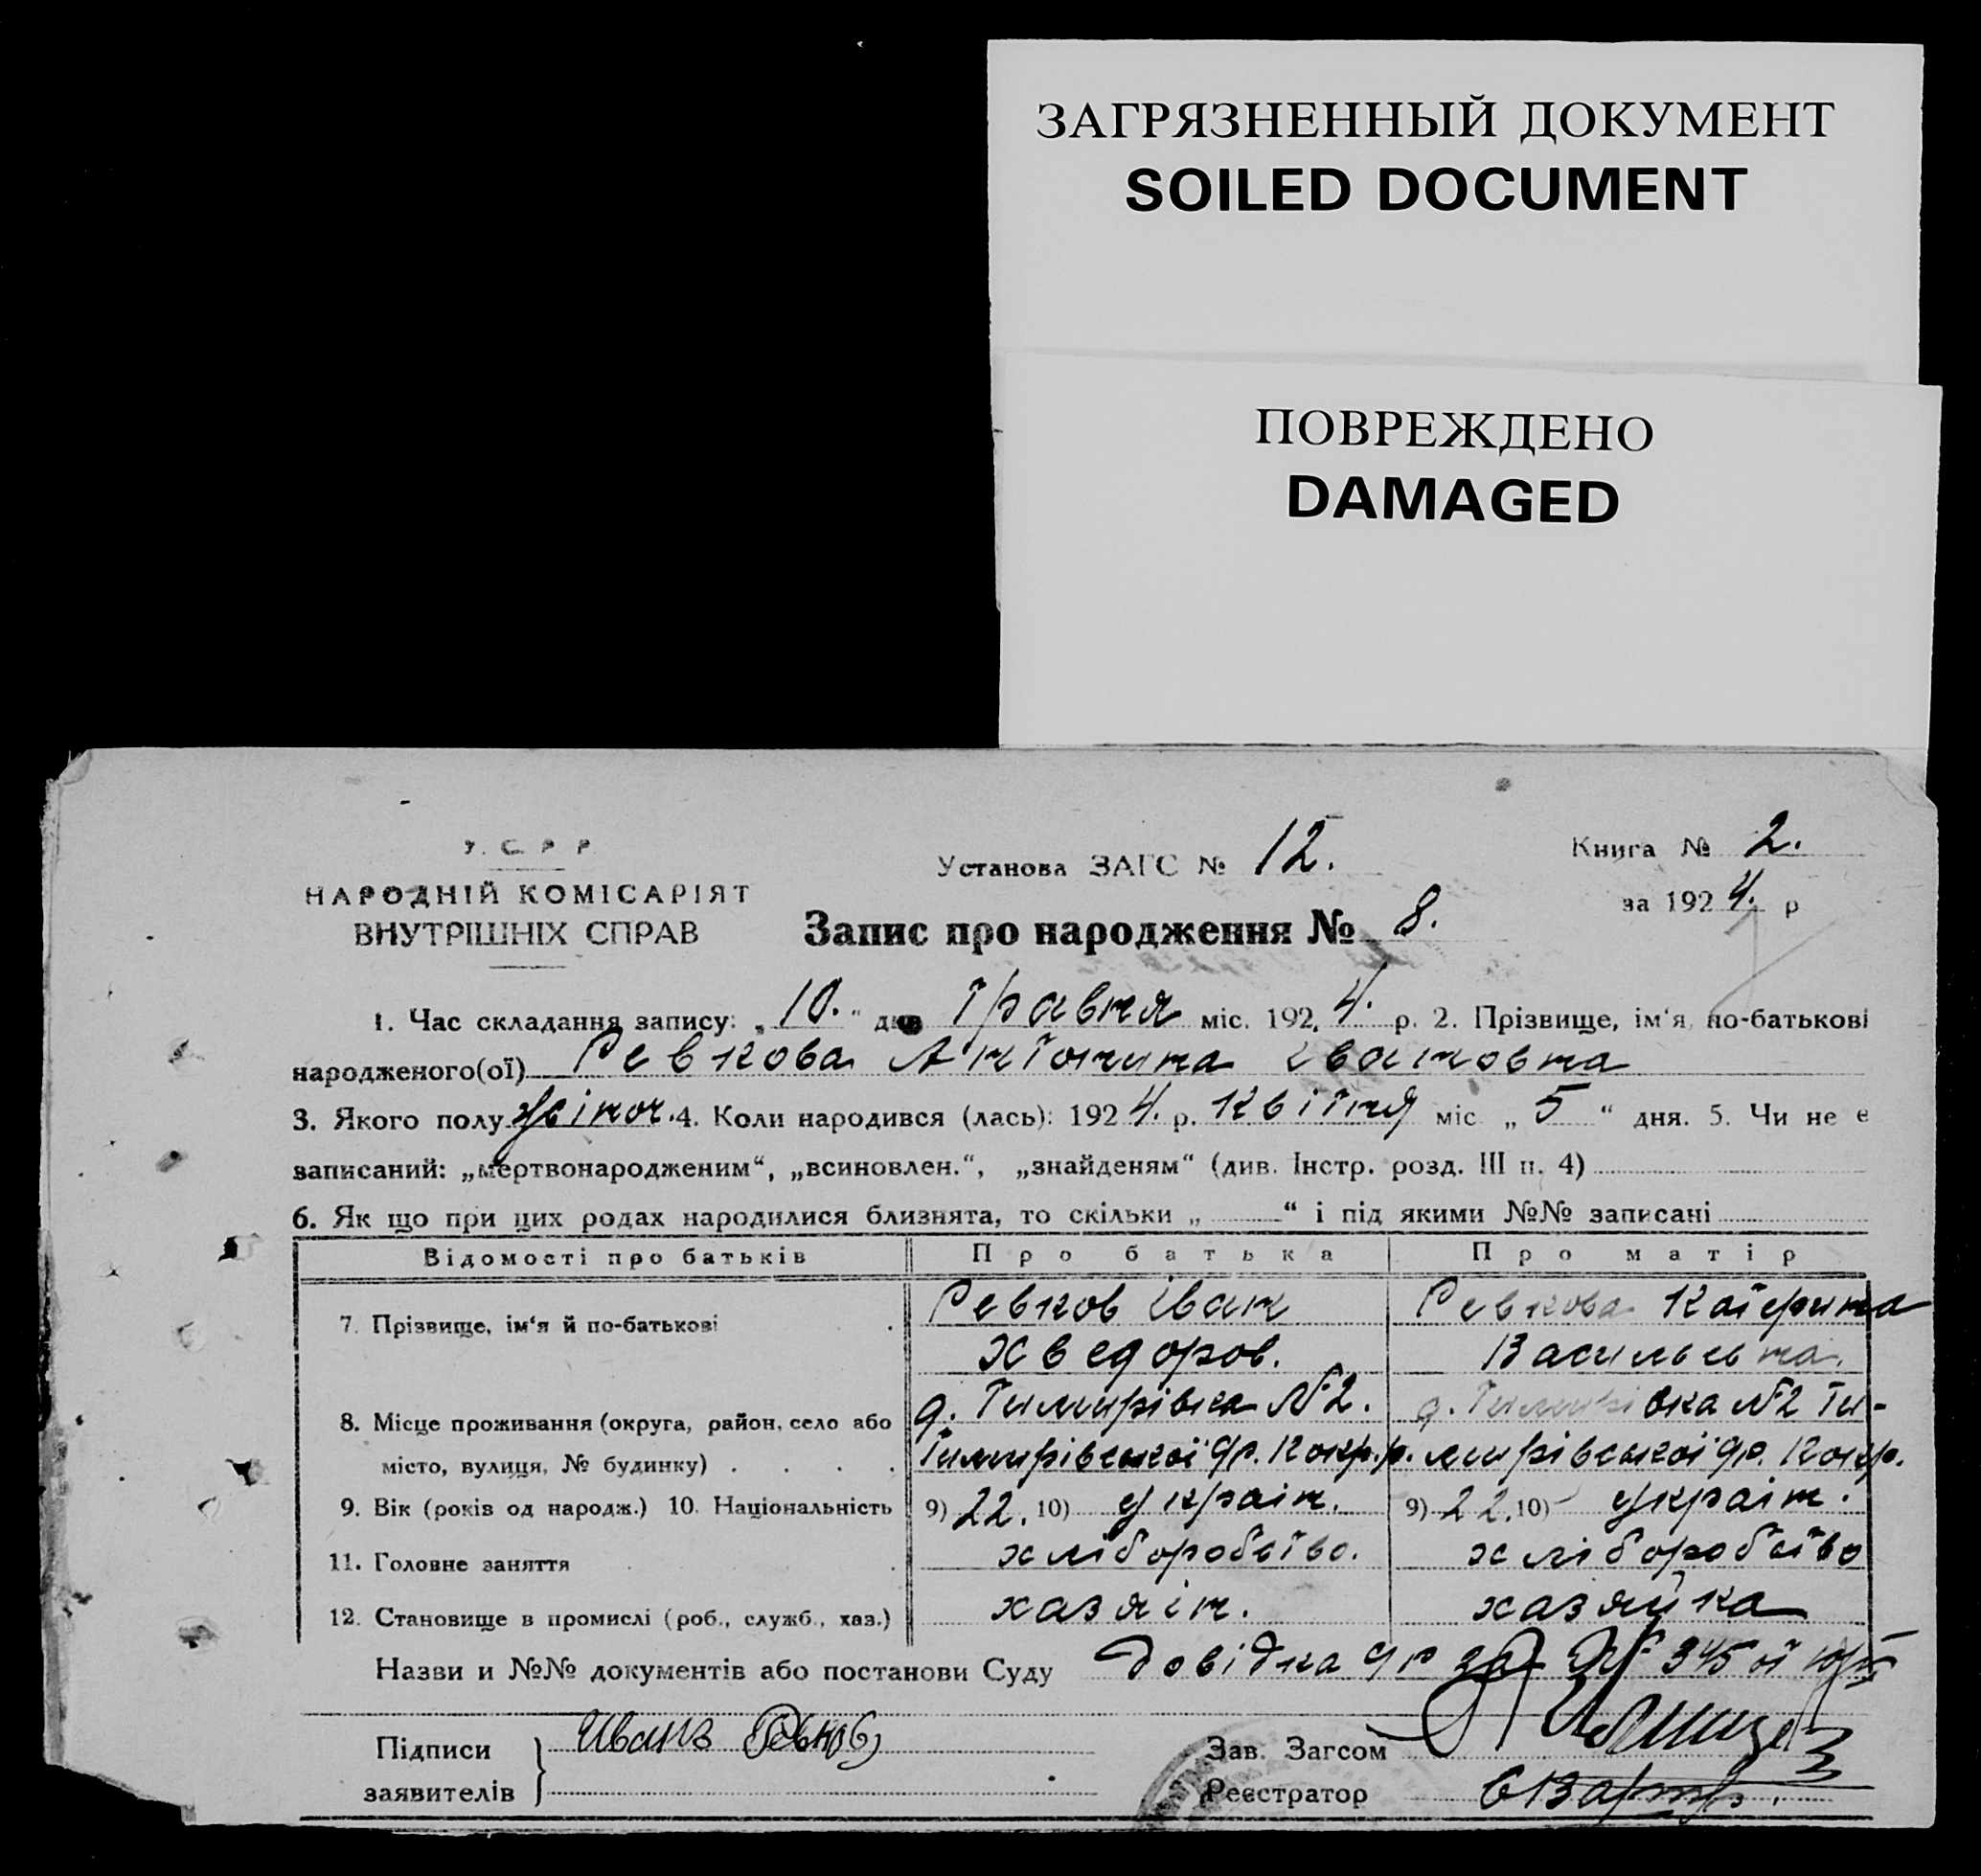 ЗАГРЯЗНЕННЫЙ ДОКУМЕНТ
SOILED DOCUMENT
ПОВРЕЖДЕНО
DAMAGED
У. С. Р. Р.
НАРОДНІЙ КОМІСАРІЯТ
ВНУТРІШНІХ СПРАВ
Установа ЗАГС № 12.
Книга № 2.
за 1924. р
Запис про народження № 8.
1. Час складання запису: „10.“ дня Травня міс. 1924. р. 2. Прізвище, ім‘я, по-батькові
народженого(ої) Ревкова Антонина Івановна
3. Якого полу жіноч. 4. Коли народився (лась): 1924. р. Квітня міс. „5“ дня. 5. Чи не є
записаний: „мертвонародженим“, „всиновлен.“, „знайденям“ (див. Інстр. розд. III п. 4)
6. Як що при цих родах народилися близнята, то скільки „ “ і під якими №№ записані
Відомості про батьків Про батька Про матір
7. Прізвище, ім‘я й по-батькові Ревков Іван Ревкова Катерина
Хведоров. Васильевна.
8. Місце проживання (округа, район, село або д. Тимирівка №2. д. Тимирівка №2 Ти-
місто, вулиця, № будинку) Тимирівської др. Кокр. р. мирівської др. Кокр.
9. Вік (років од народж.) 10. Національність 9) 22. 10) Україн. 9) 22. 10) Україн.
11. Головне заняття хліборобство. хліборобство
12. Становище в промислі (роб., служб., хаз.) хазяїн. хазяйка
Назви и №№ документів або постанови Суду Довідка № 345
Підписи Иванъ Ревковъ
заявителів
Зав. Загсом
Реєстратор